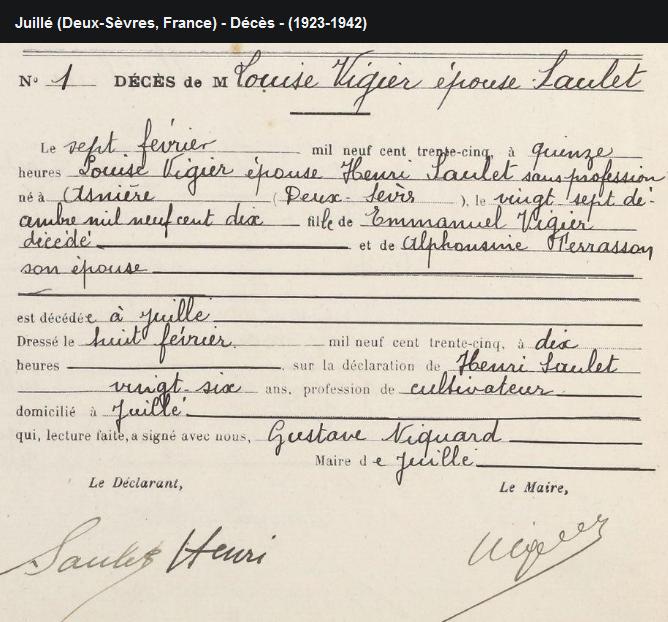 Juillé (Deux-Sèvres, France) - Décès - (1923-1942)
No 1 DÉCÈS de M Louise Vigier épouse Saulet
Le sept février mil neuf cent trente-cinq, à quinze
heures Louise Vigier épouse Henri Saulet sans profession
né à Asnière (Deux-Sevrs), le vingt sept dé-
cembre mil neuf cent dix fille de Emmanuel Vigier
décédé et de Alphonsine Terrasson
son épouse
est décédée à Juillé
Dressé le huit février mil neuf cent trente-cinq, à dix
heures, sur la déclaration de Henri Saulet
vingt-six ans, profession de cultivateur
domicilié à Juillé
qui, lecture faite, a signé avec nous, Gustave Niquard
Maire de Juillé
Le Déclarant, Le Maire,
Saulet Henri